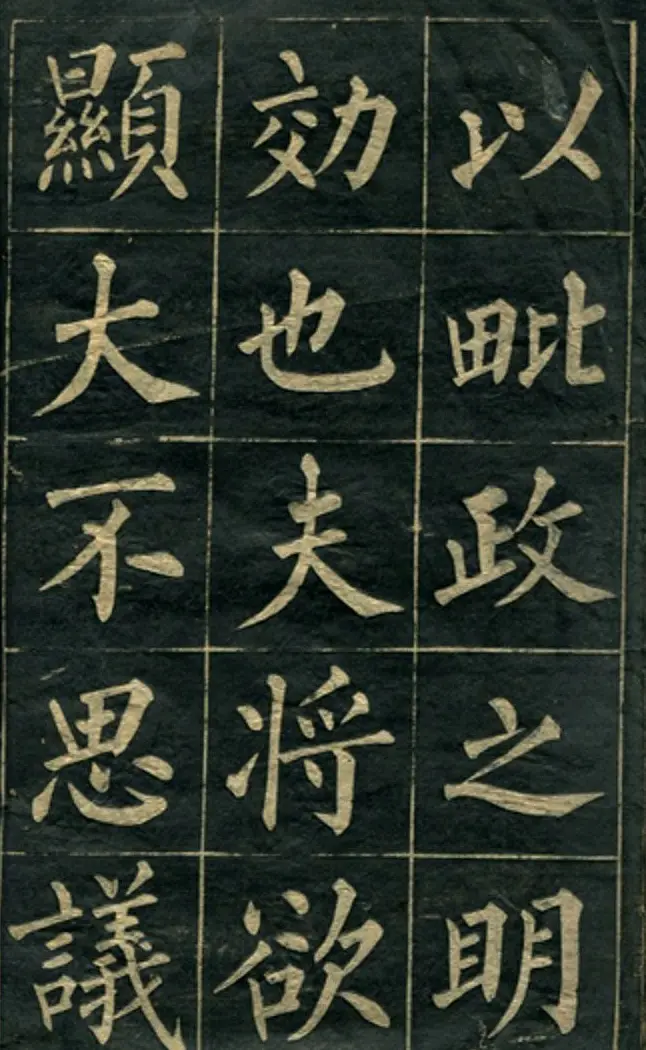 以毗政之明
効也夫將欲
顯大不思議